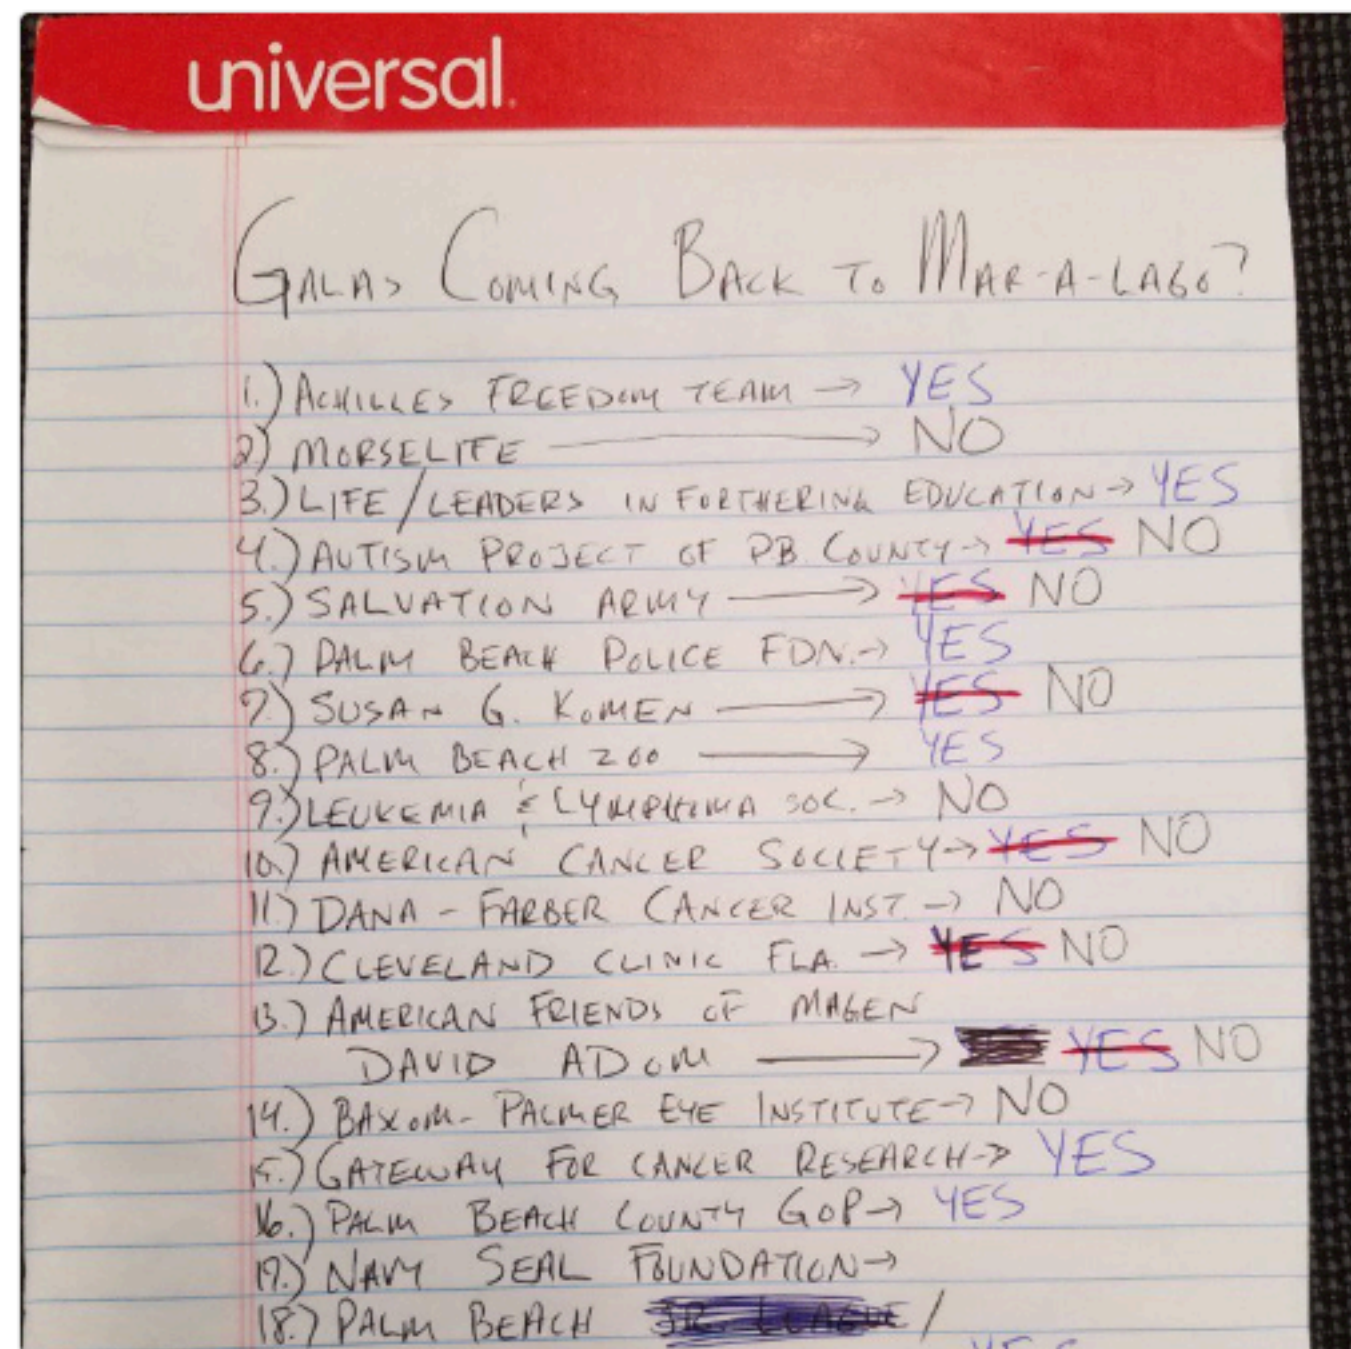 universal
GALAS COMING BACK TO MAR-A-LAGO?
1.) ACHILLES FREEDOM TEAM → YES
2) MORSELIFE → NO
3.) LIFE/LEADERS IN FURTHERING EDUCATION → YES
4.) AUTISM PROJECT OF PB COUNTY → YES NO
5.) SALVATION ARMY → YES NO
6.) PALM BEACH POLICE FDN. → YES
7.) SUSAN G. KOMEN → YES NO
8.) PALM BEACH ZOO → YES
9.) LEUKEMIA & LYMPHOMA SOC. → NO
10.) AMERICAN CANCER SOCIETY → YES NO
11.) DANA-FARBER CANCER INST. → NO
12.) CLEVELAND CLINIC FLA. → YES NO
13.) AMERICAN FRIENDS OF MAGEN
DAVID ADOM → YES NO
14.) BASCOM-PALMER EYE INSTITUTE → NO
15.) GATEWAY FOR CANCER RESEARCH → YES
16.) PALM BEACH COUNTY GOP → YES
17.) NAVY SEAL FOUNDATION →
18.) PALM BEACH JR. LEAGUE /
YES